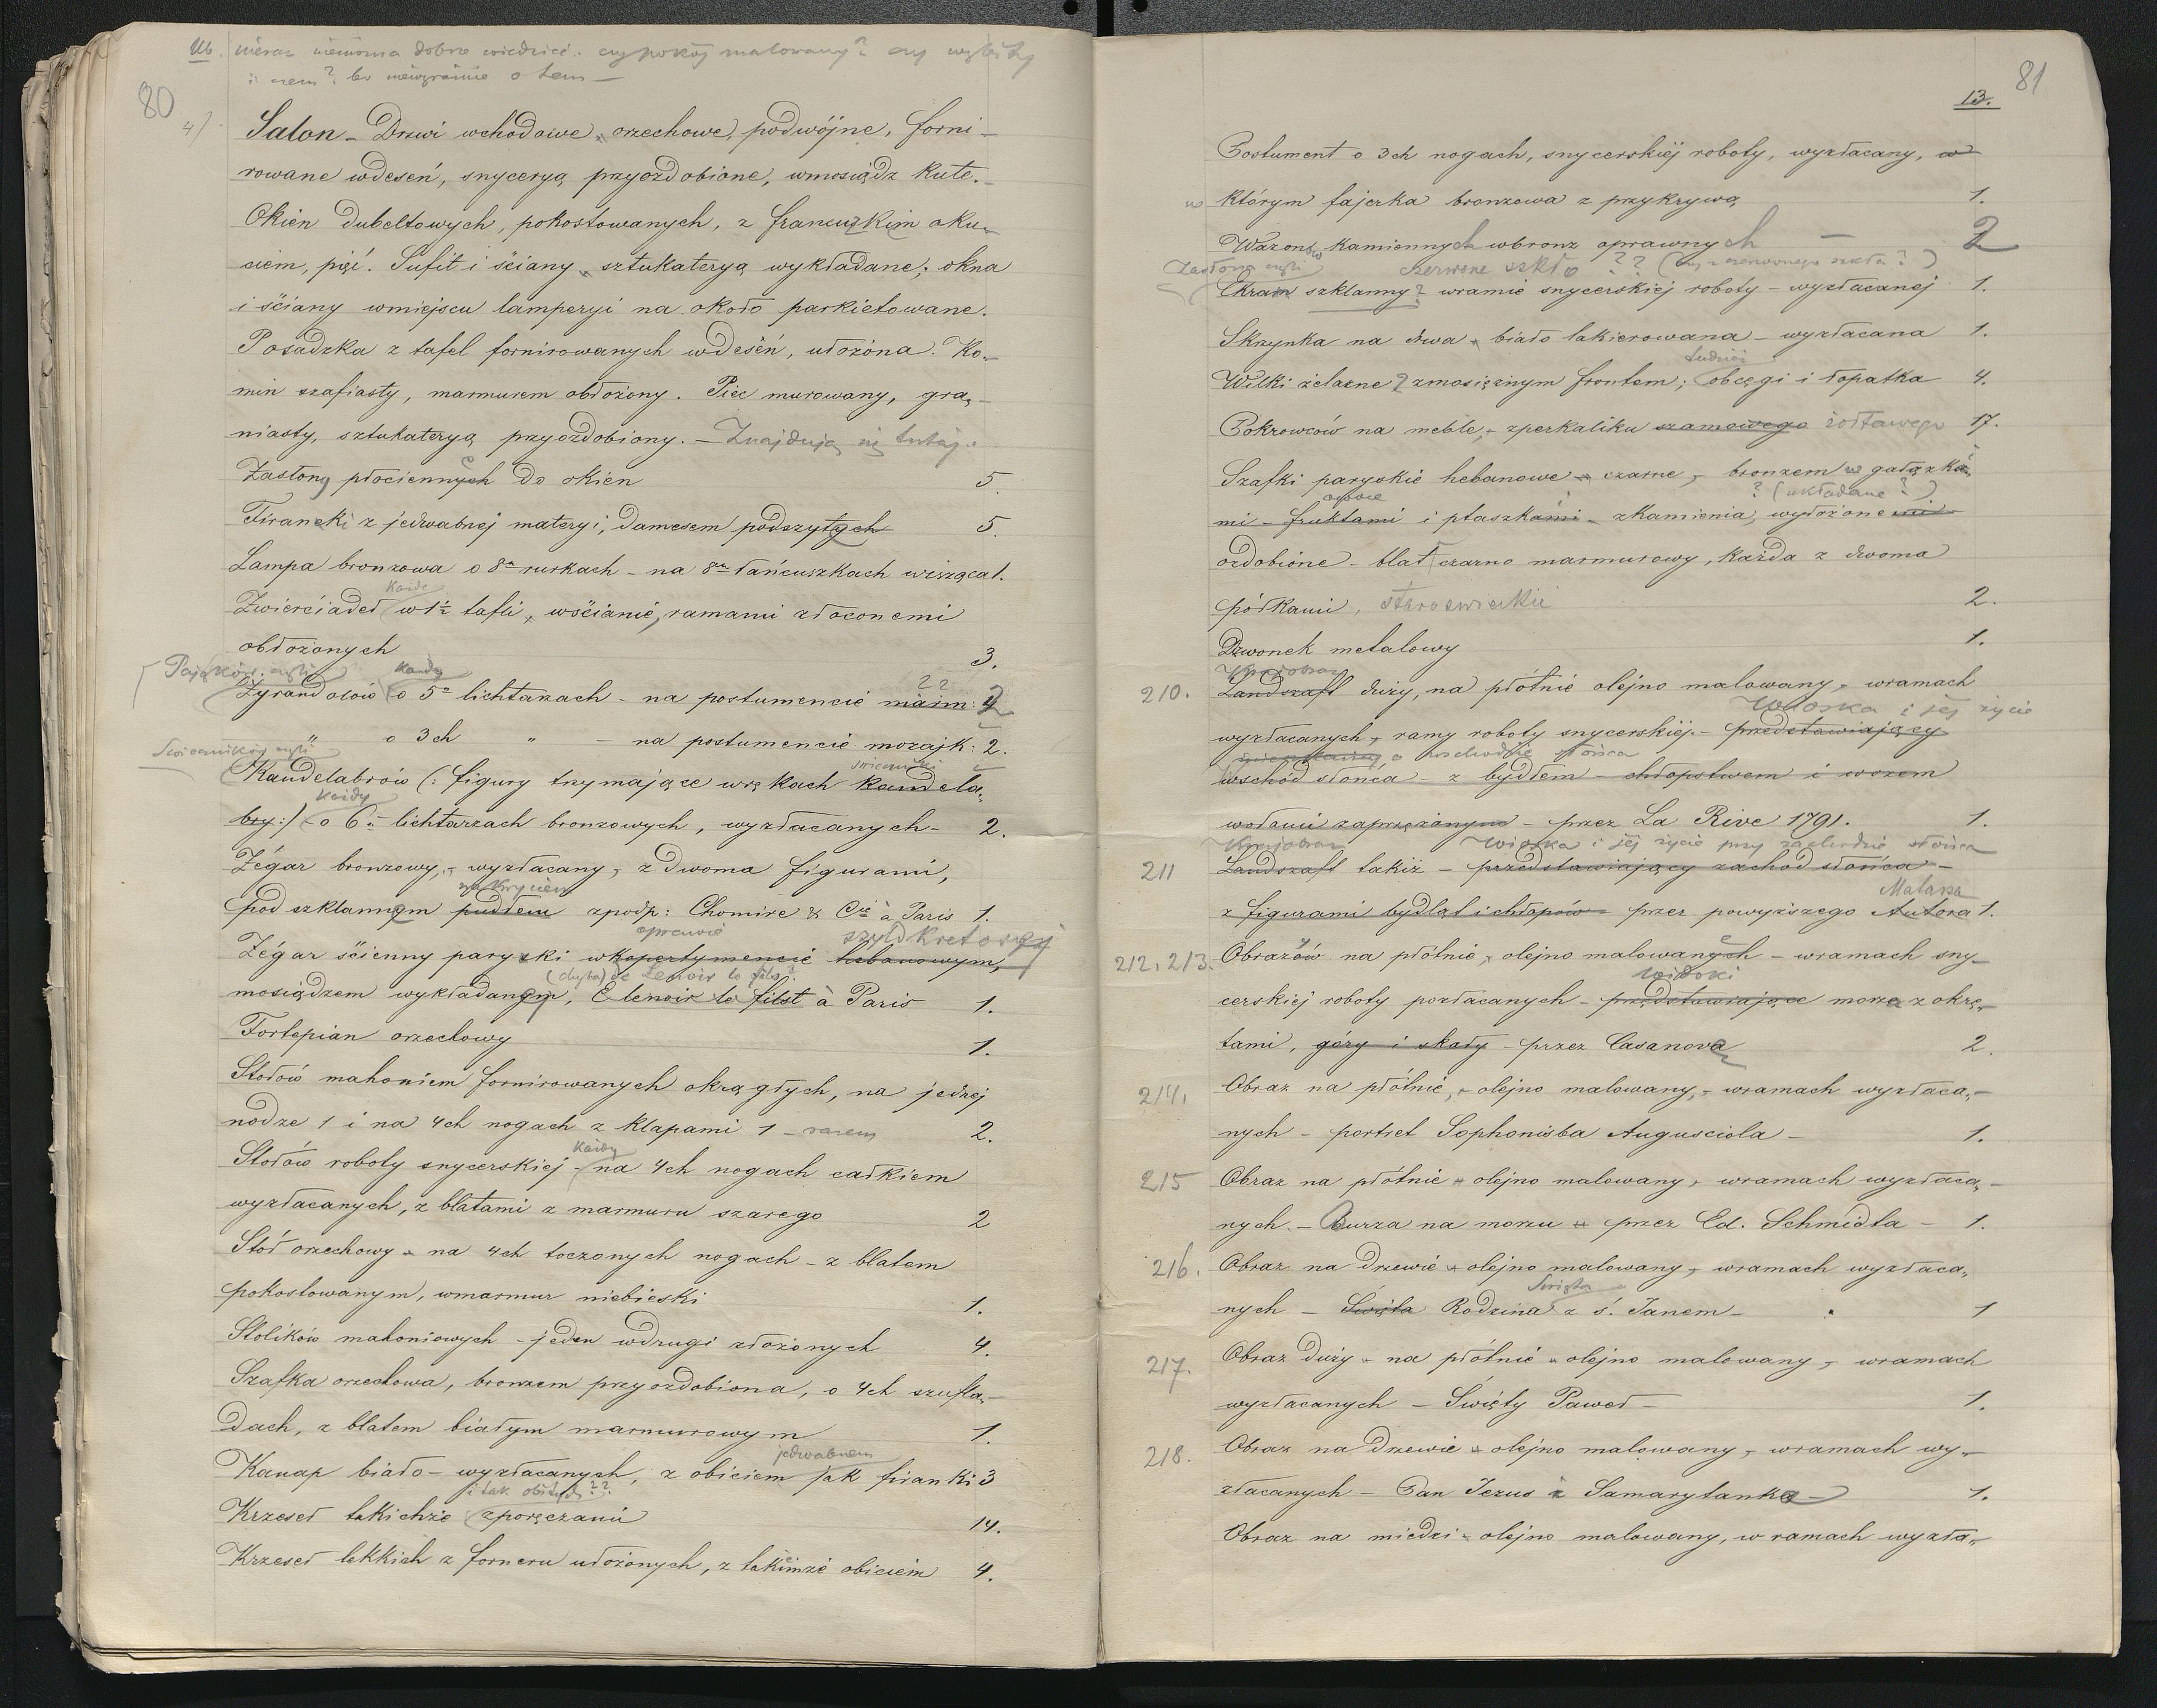 Nb. nieraz niemożna dobrze wiedzieć. czy pokój malowany? czy wybity
i czem? bo niewyraźnie o tem —
80
4)
Salon – Drzwi wchodowe orzechowe, podwójne, forni-
rowane wdeseń, snyceryą przyozdobione, wmosiądz kute.-
Okien dubeltowych, pokostowanych, z francuzkim oku-
ciem, pięć. Sufit i ściany sztukateryą wykładane; okna
i ściany wmiejscu lamperyi na około parkietowane.
Posadzka z tafel fornirowanych wdeseń, ułożona. Ko-
min szafiasty, marmurem obłożony. Piec murowany, gra-
niasty, sztukateryą przyozdobiony. – Znajdują się tutaj:
Zasłony płóciennych do okien 5.
Firanki z jedwabnej materyi, damesem podszytych 5.
Lampa bronzowa o 8u rurkach – na 8u łańcuszkach wisząca 1.
każde
Zwierciadeł w 1½ tafli, wścianie, ramami złoconemi
obłożonych 3.
Pająków czyli każdy 22
Żyrandolów o 5u lichtarzach – na postumencie marm: 2
„ o 3ch „ – na postumencie mozajk: 2.
Świeczników czyli świeczniki
Kandelabrów (: figury trzymające wrękach kandela-
każdy
bry:) o 6u lichtarzach bronzowych, wyzłacanych – 2.
Zégar bronzowy, wyzłacany, z dwoma figurami,
nakryciem
pod szklannem pudłem zpodp: Chomire & Cie à Paris 1.
oprawie szyldkretowej
Zégar ścienny paryzki wkopertymencie hebanowym,
(chyba) de Lenoir le fils?
mosiądzem wykładanym, E lenoir le filst à Paris 1.
Fortepian orzechowy 1.
Stołów mahoniem fornirowanych okrągłych, na jednej
nodze 1 i na 4ch nogach z klapami 1 – razem 2.
każdy
Stołów roboty snycerskiej – na 4ch nogach całkiem
wyzłacanych, z blatami z marmuru szarego 2
Stół orzechowy na 4ch toczonych nogach – z blatem
pokostowanym, wmarmur niebieski 1.
Stolików mahoniowych – jeden wdrugi złożonych 4.
Szafka orzechowa, bronzem przyozdobiona, o 4ch szufla-
dach, z blatem białym marmurowym 1.
jedwabnem
Kanap biało – wyzłacanych, z obiciem jak firanki 3
i tak obitych??
Krzeseł takichże zporęczami 14.
Krzeseł lekkich z forneru ułożonych, z takimże obiciem 4.
81
13.
Postument o 3ch nogach, snycerskiéj roboty, wyzłacany, w
w którym fajerka bronzowa z przykrywą 1.
Wazonów kamiennych wbronz oprawnych — 2
Zasłona czyli czerwone szkło ?? (czy z czerwonego szkła?)
Ekran szklanny? wramie snycerskiej roboty – wyzłacanej 1.
Skrzynka na drwa biało lakierowana – wyzłacana 1.
tudzież
Wilki żelazne 2 zmosiężnym frontem; obcęgi i łopatka 4.
Pokrowców na meble, zperkaliku szamowego żółtawego 17.
Szafki paryskie hebanowe czarne, bronzem w gałązka-
owoce ? (wkładane?)
mi – fruktami i ptaszkami – zkamienia, wyłożonemi
ozdobione – blat czarno marmurowy, każda z dwoma
półkami, staroświeckie 2.
Dzwonek metalowy 1.
Krajobraz
210. Landszaft duży, na płótnie olejno malowany, wramach
Wioska i jej życie
wyzłacanych, ramy roboty snycerskiéj – przedstawiający
o wschodzie słońca
wschód słońca – z bydłem – chłopstwem i wozem
wołami zaprzężonym – przez La Rive 1791. 1.
Krajobraz Wioska i jéj życie przy zachodzie słońca
211 Landszaft takiż – przedstawiający zachód słońca –
Malarza
z figurami bydląt i chłopów – przez powyższego Autora 1.
212, 213. Obrazów na płótnie, olejno malowanych – wramach sny-
widoki
cerskiej roboty pozłacanych – przedstawiające morza z okrę-
tami, góry i skały – przez Casanova 2.
214. Obraz na płótnie, olejno malowany, wramach wyzłaca-
nych – portret Sophonisba Augusciola – 1.
215 Obraz na płótnie olejno malowany, wramach wyzłaca-
nych – Burza na morzu przez Ed. Schmidta – 1.
216. Obraz na drzewie olejno malowany, wramach wyzłaca-
Święta
nych – Święta Rodzina z ś. Janem – 1
217. Obraz duży na płótnie olejno malowany, wramach
wyzłacanych – Święty Paweł – 1.
218. Obraz na drzewie olejno malowany, wramach wy-
złacanych – Pan Jezus i Samarytanka 1.
Obraz na miedzi olejno malowany, w ramach wyzła-